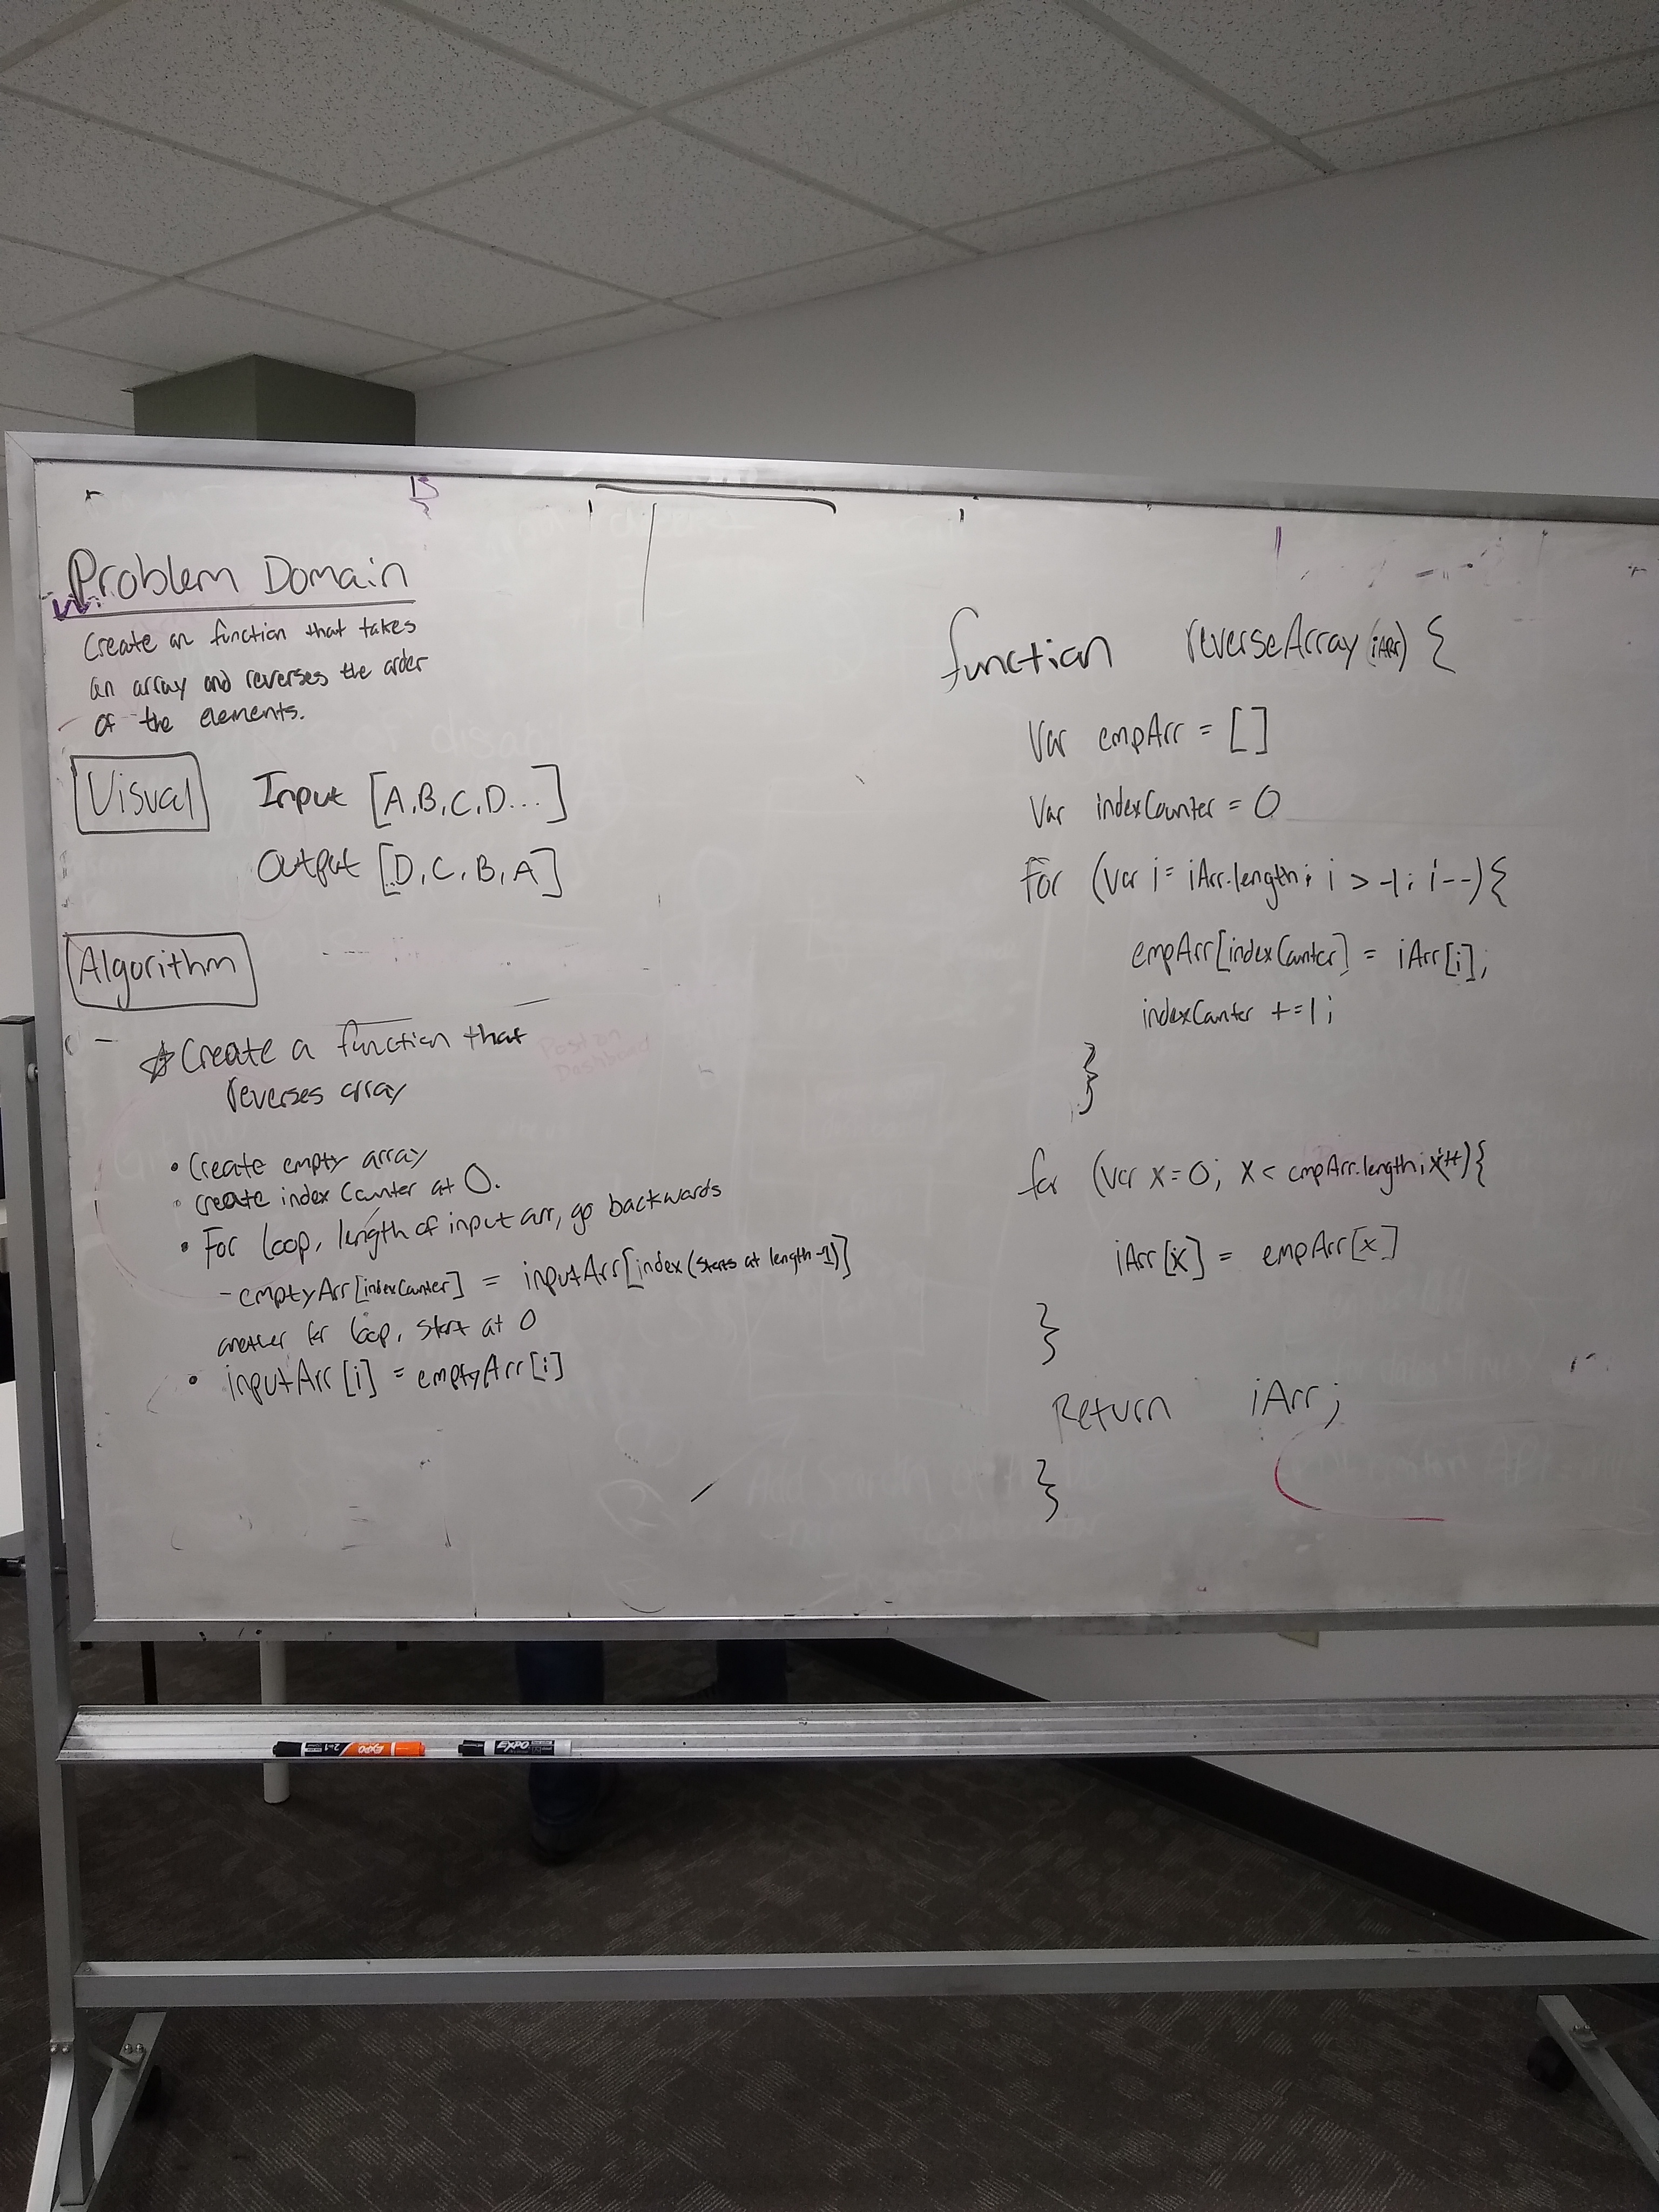 Problem Domain
Create an function that takes
an array and reverses the order
of the elements.
Visual
Input [A,B,C,D...]
Output [D,C,B,A]
Algorithm
☆ Create a function that
reverses array
• Create empty array
• create index Counter at 0.
• For loop, length of input arr, go backwards
- emptyArr[indexCounter] = inputArr[index(starts at length-1)]
another for loop, start at 0
• inputArr[i] = emptyArr[i]
function reverseArray(iArr) {
Var empArr = []
Var indexCounter = 0
For (Var i = iArr.length; i > -1; i--){
empArr[indexCounter] = iArr[i];
indexCounter +=1;
}
for (var x=0; x < empArr.length; x++){
iArr[x] = empArr[x]
}
Return iArr;
}
EXPO
EXPO